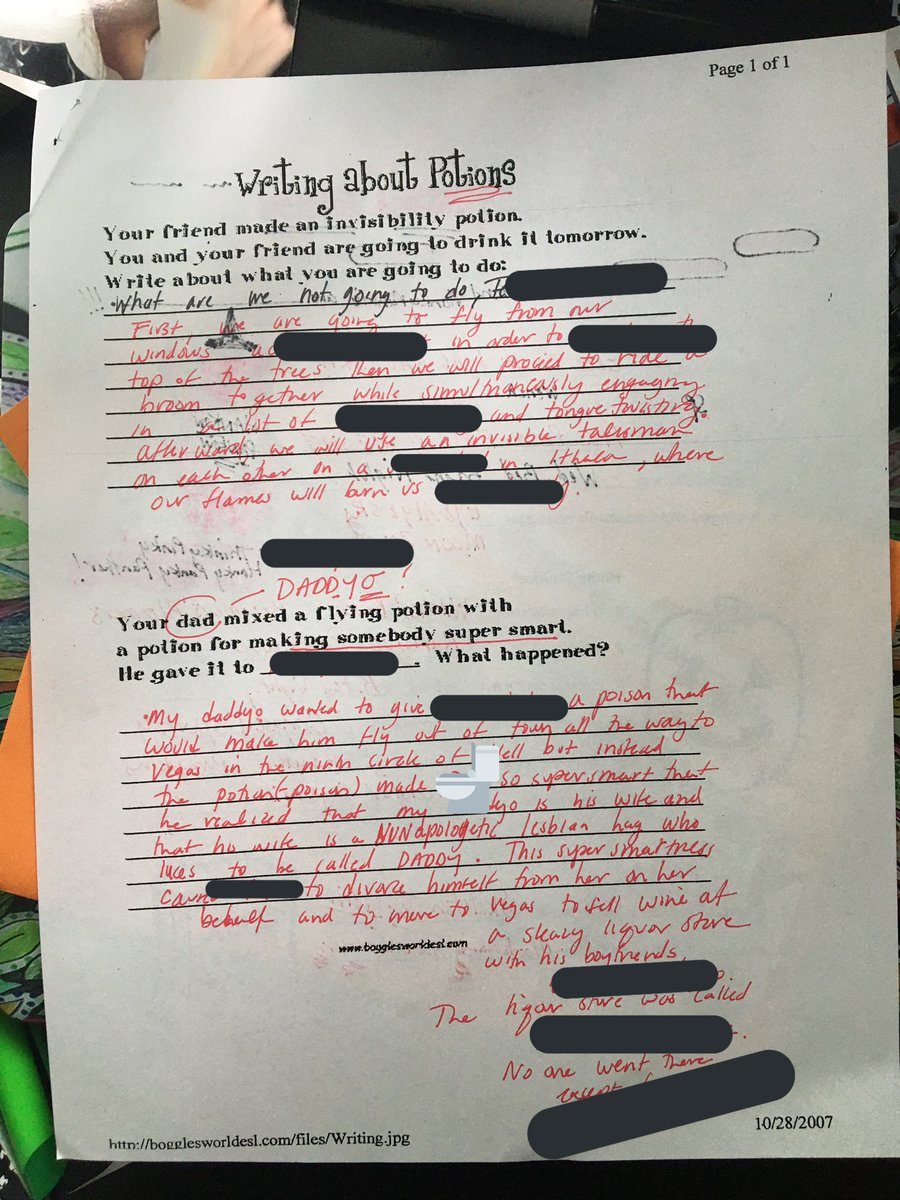 Page 1 of 1
Writing about Potions
Your friend made an invisibility potion.
You and your friend are going to drink it tomorrow.
Write about what you are going to do:
What are we not going to do,
First, we are going to fly from our
windows in order to
top of the trees then we will proceed to ride a
broom together while simultaneously engaging
in of and tongue twisting.
Afterward, we will use an invisible talisman
on each other on a in Ithaca, where
our flames will burn us
DADDYO?
Your dad mixed a flying potion with
a potion for making somebody super smart.
He gave it to . What happened?
My daddyo wanted to give a poison that
would make him fly out of town all the way to
Vegas in the ninth circle of Hell but instead
the potion(-poison) made so supersmart that
he realized that my is his wife and
that his wife is a NUNapologetic lesbian hag who
likes to be called DADDY. This supersmartness
to divorce himself from her on her
behalf and to move to Vegas to sell wine at
a sleazy liquor store
www.bogglesworldesl.com
with his boyfriends,
The liquor store was called
No one went there
except
http://bogglesworldesl.com/files/Writing.jpg
10/28/2007